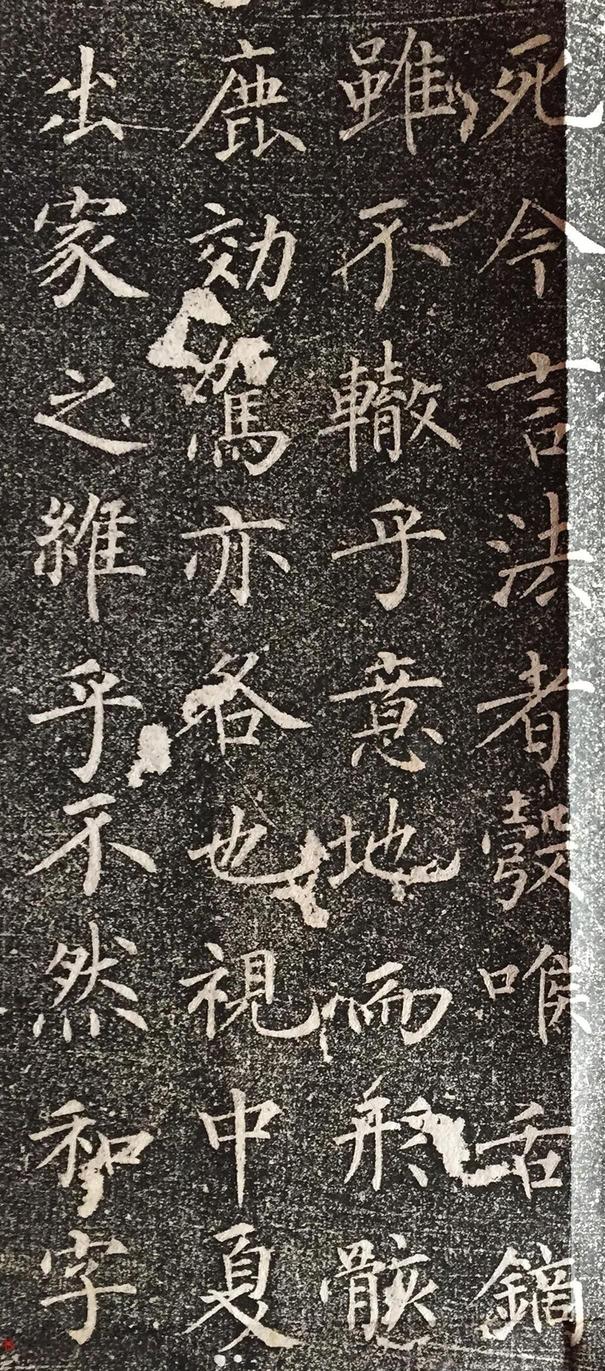 死今言法者彀喉舌鏑
雖不轍乎意地而形骸
鹿効駕亦各也視中夏
出家之雖乎不然和字